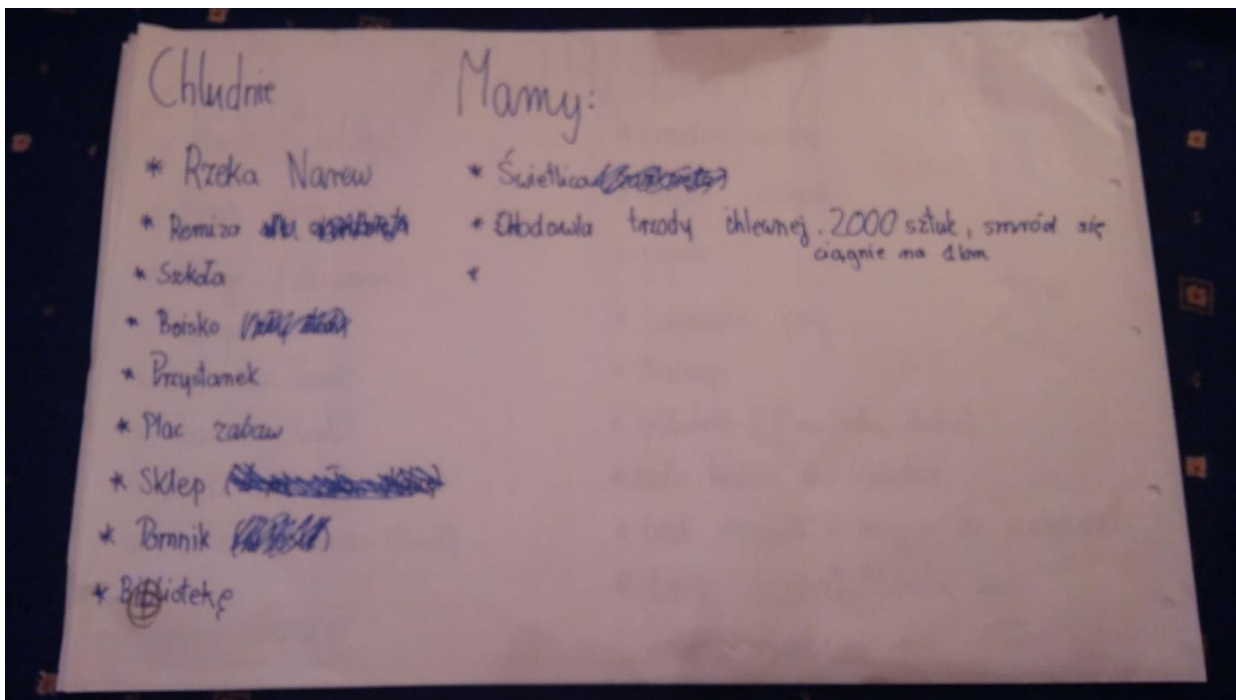 Chludnie
Mamy:
* Rzeka Narew
* Remiza
* Szkoła
* Boisko
* Przystanek
* Plac zabaw
* Sklep
* Pomnik
* Bibliotekę
* Świetlica
* Chodowla trzody chlewnej. 2000 sztuk, smród się
ciągnie na 1 km
*